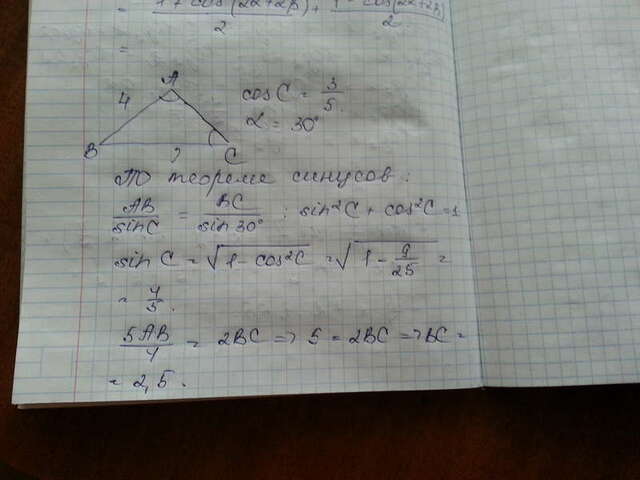 = 1 + cos(2α+2β) / 2 + 1 - cos(2α+2β) / 2
=
A
4
B
?
C
cos C = 3/5.
α = 30°
По теореме синусов:
AB/sinC = BC/sin30° ; sin²C + cos²C = 1
sin C = √(1 - cos²C) = √(1 - 9/25) =
= 4/5.
5AB/4 = 2BC => 5 = 2BC => BC =
= 2,5.